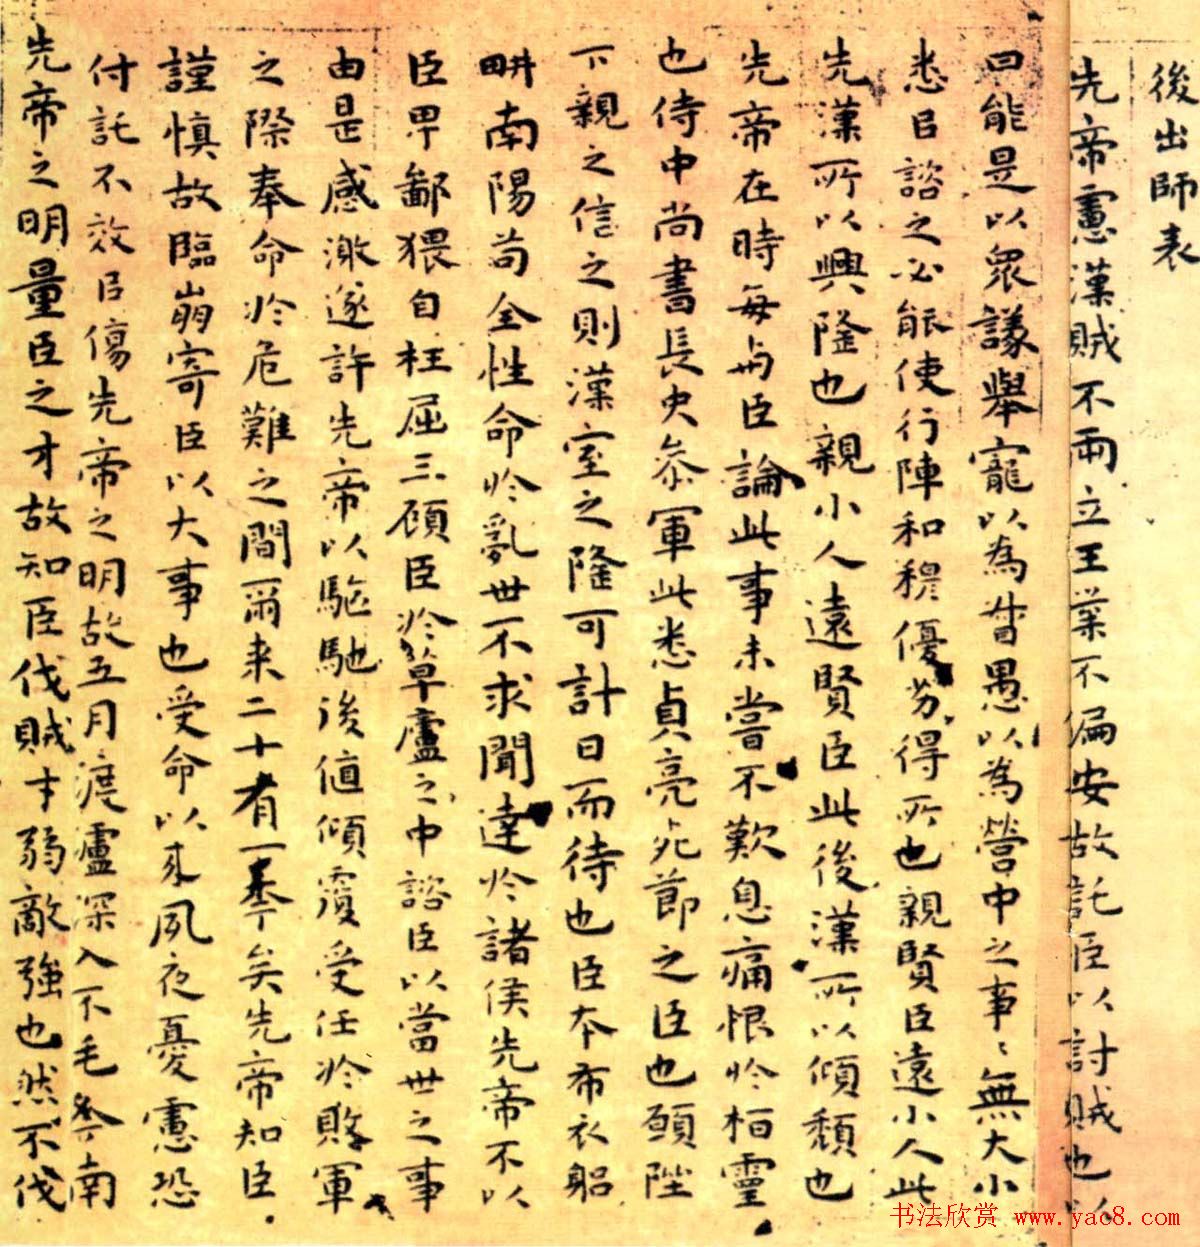 後出師表
先帝慮漢賊不兩立王業不偏安故託臣以討賊也以
曰能是以眾議舉寵以為督愚以為營中之事〻無大小
悉臣諮之必能使行陣和穆優劣得所也親賢臣遠小人此
先漢所以興隆也親小人遠賢臣此後漢所以傾頹也
先帝在時每与臣論此事未嘗不歎息痛恨於桓靈
也侍中尚書長史叅軍此悉貞亮死節之臣也願陛
下親之信之則漢室之隆可計日而待也臣本布衣躬
畊南陽苟全性命於亂世不求聞達於諸侯先帝不以
臣卑鄙猥自枉屈三顧臣於草廬之中諮臣以當世之事
由是感激遂許先帝以驅馳後值傾覆受任於敗軍
之際奉命於危難之間爾来二十有一年矣先帝知臣
謹慎故臨崩寄臣以大事也受命以来夙夜憂慮恐
付託不效臣傷先帝之明故五月渡瀘深入不毛 南
先帝之明量臣之才故知臣伐賊才弱敵強也然不伐
书法欣赏 www.yac8.com